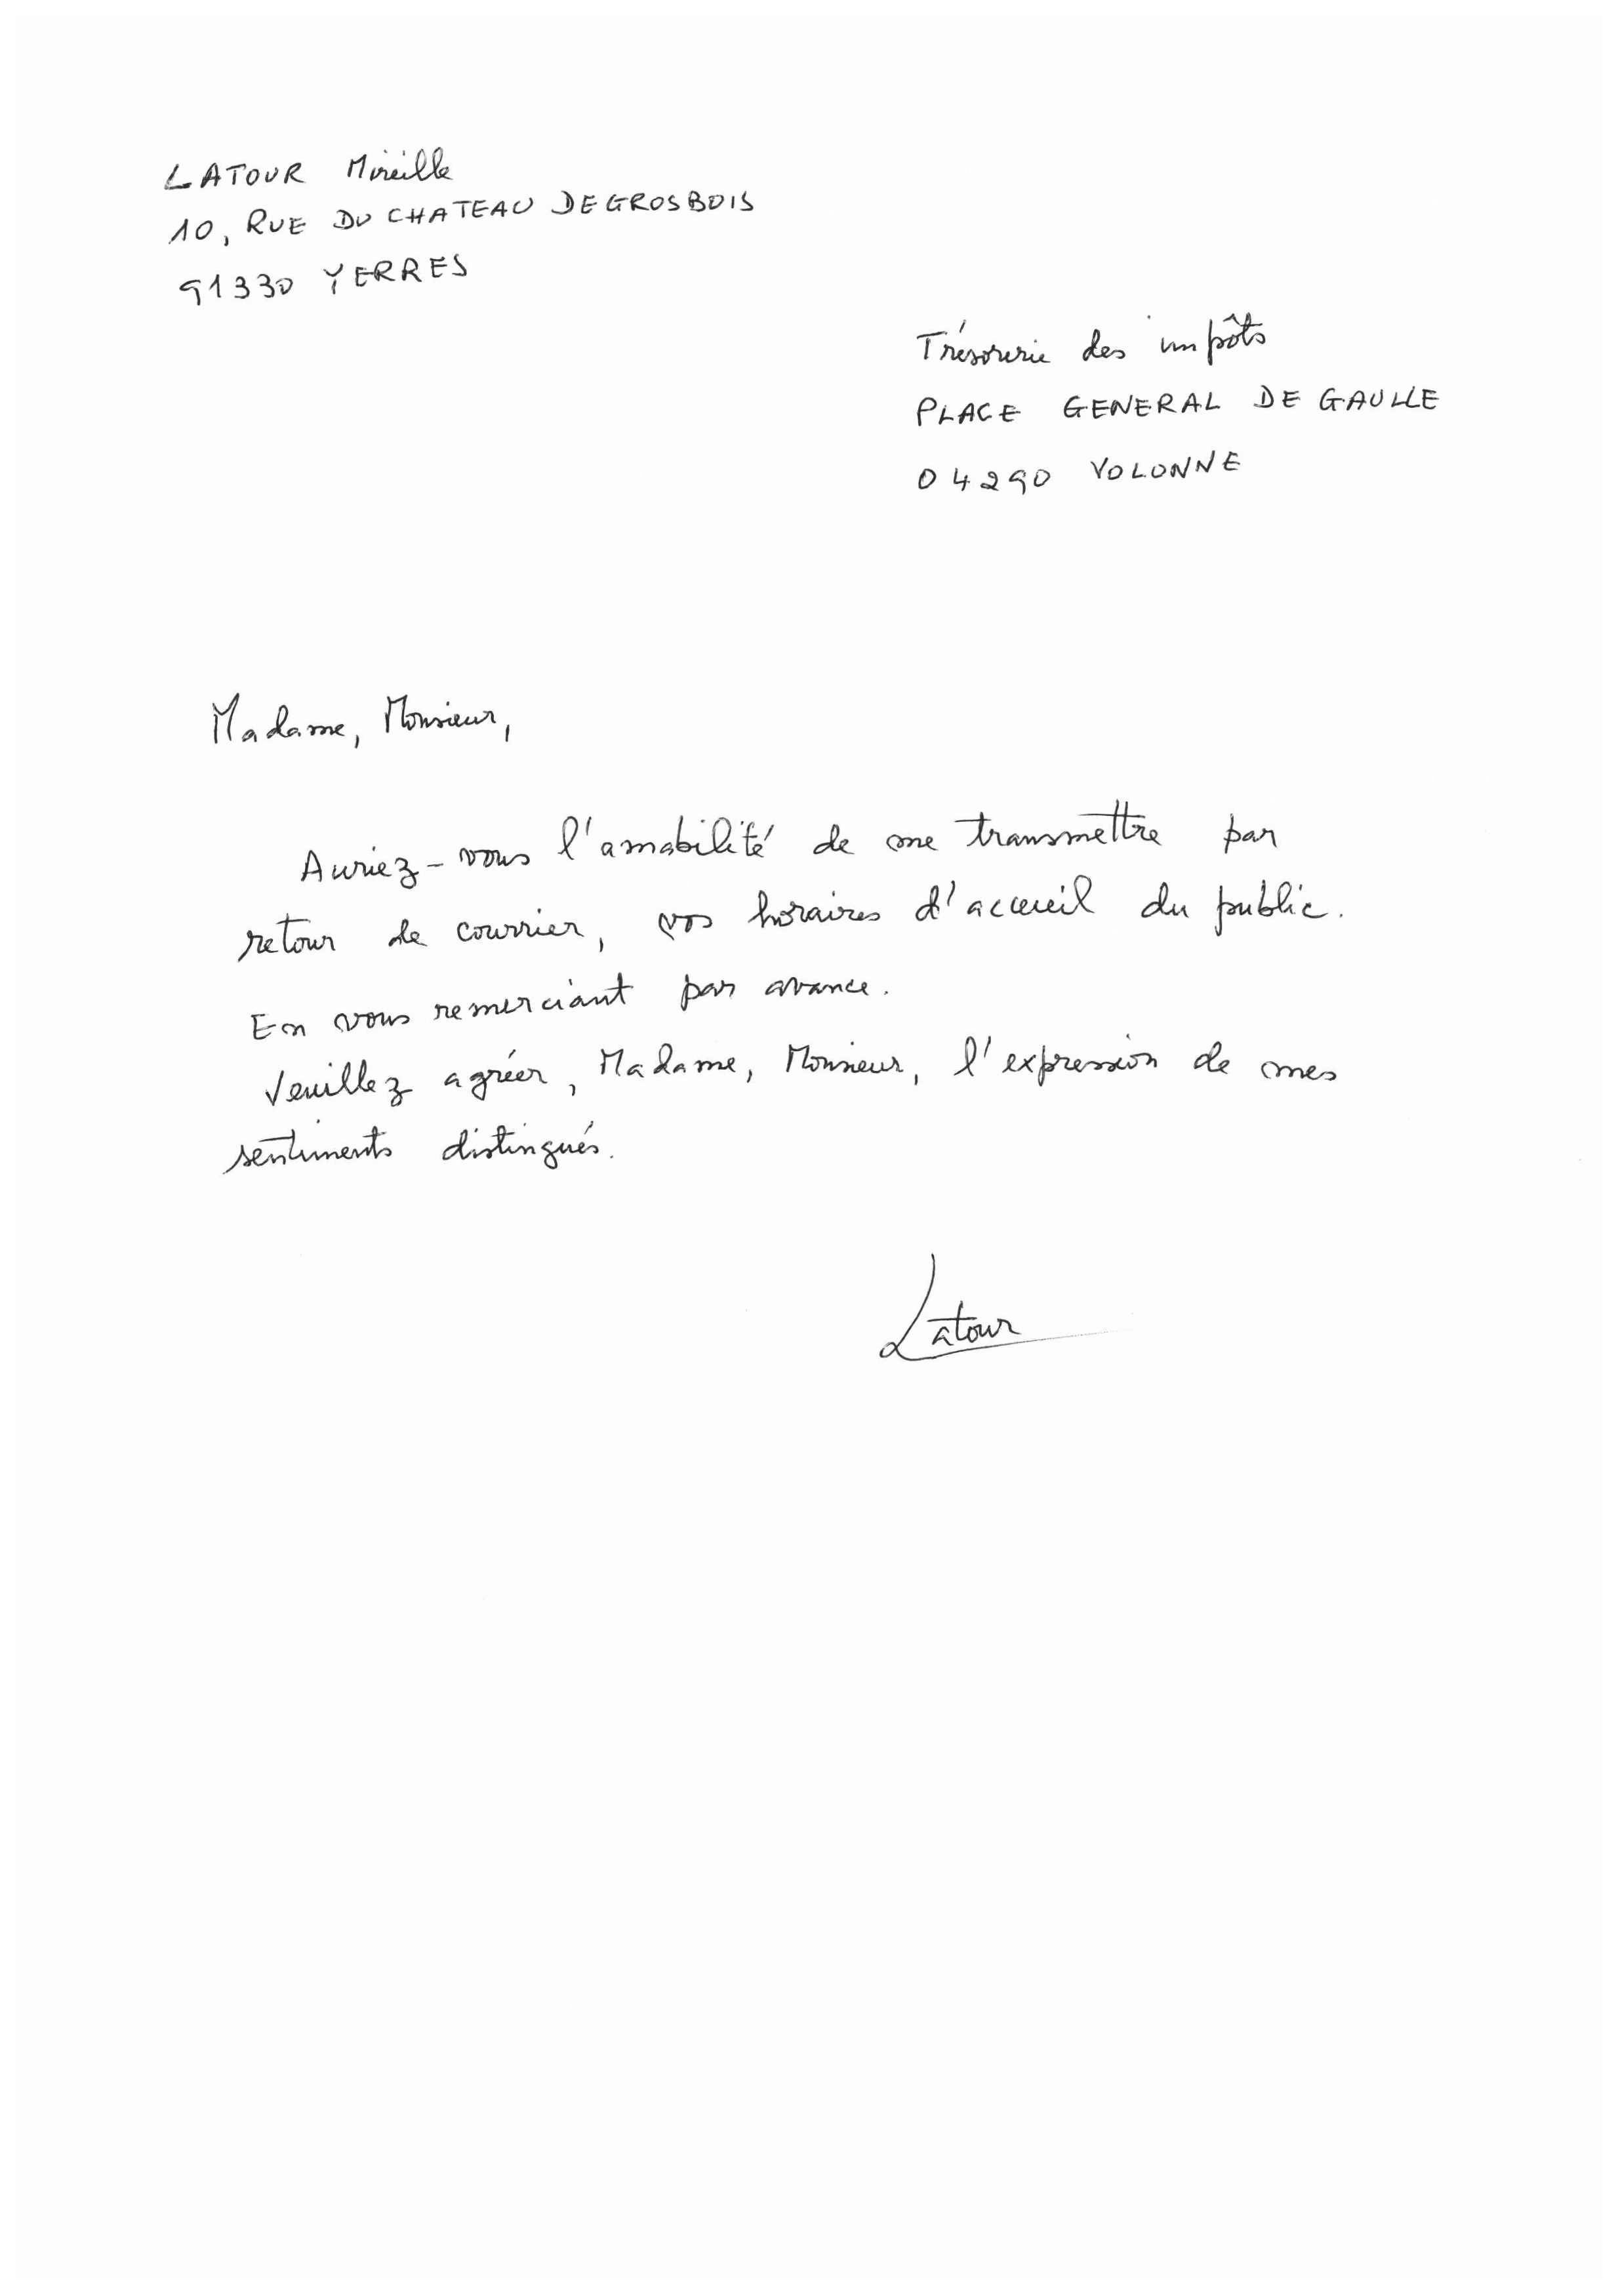 LATOUR Mireille
10, RUE DU CHATEAU DE GROSBOIS
91330 YERRES
Trésorerie des impôts
PLACE GENERAL DE GAULLE
04290 VOLONNE
Madame, Monsieur,
Auriez-vous l'amabilité de me transmettre par
retour de courrier, vos horaires d'accueil du public.
En vous remerciant par avance.
Veuillez agréer, Madame, Monsieur, l'expression de mes
sentiments distingués.
Latour